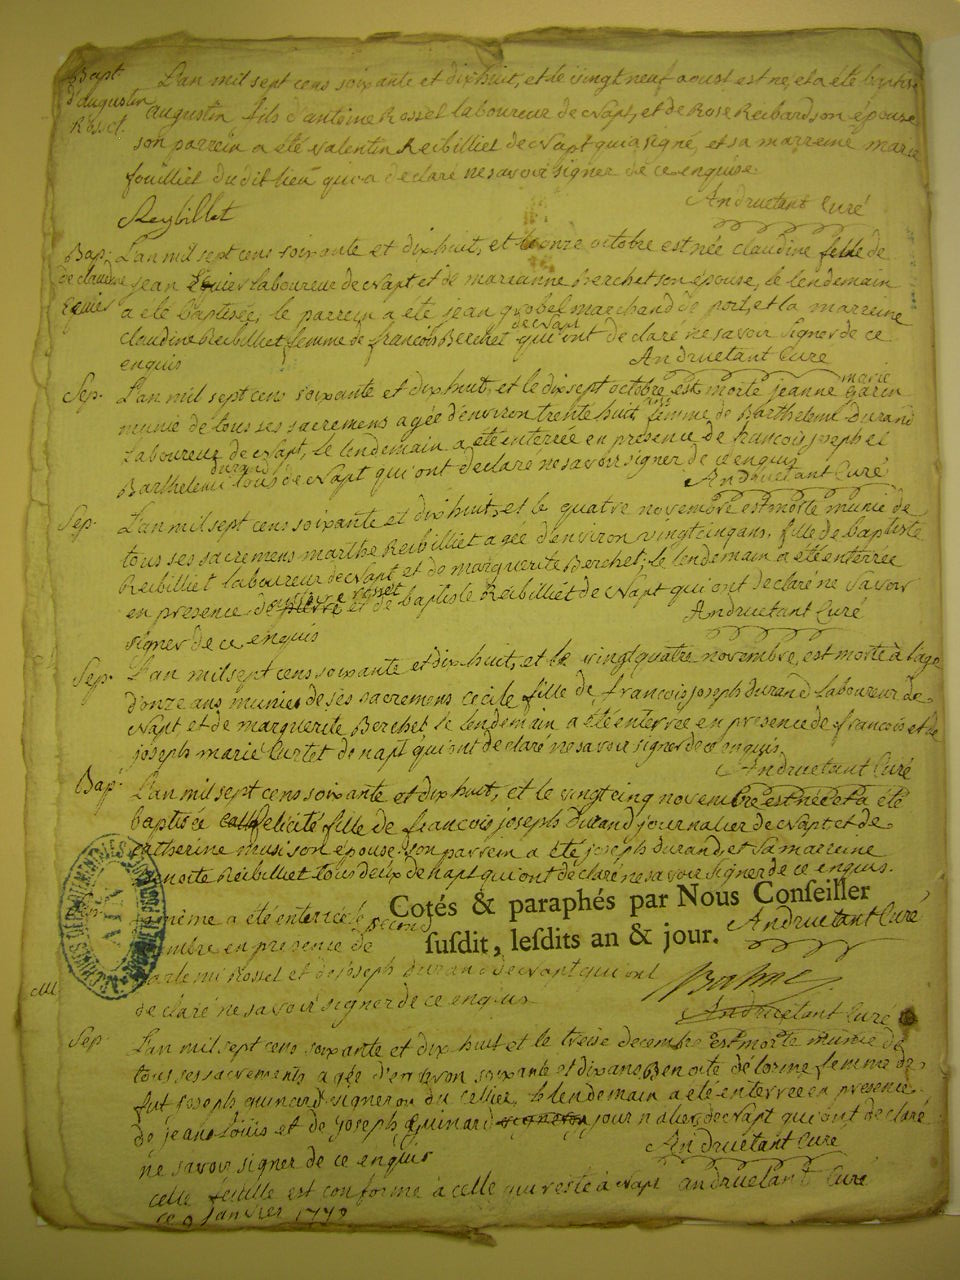 Bapt. L'an mil sept cens soixante et dixhuit, et le vingt neuf aoust est né, et a été baptisé
d'augustin augustin fils d'antoine Rosset laboureur de Napt, et de Rose Reibard, son épouse
Rosset. son parrein a été valentin Reibilliet de Napt qui a signé, et sa marreine marie
fouilliet du dit lieu qui a declaré ne savoir signer de ce enquise
Reybillet Andruetant Curé
Bap. L'an mil sept cens soixante et dixhuit, et le onze octobre est née claudine fille de
de claudine jean Equier laboureur de Napt et de marianne Berchet son epouse, le lendemain
Equier a été baptisée, le parrein a été jean grobel marchand de port, et la marreine
claudine Reibilliet femme de francois Berchet de Napt qui ont declaré ne savoir signer de ce
enquis Andruetant Curé
Sep. L'an mil sept cens soixante et dixhuit, et le dix sept octobre est morte jeanne marie Garin
munie de tous ses sacremens agée d'environ trente huit ans femme de Barthelemi Durand
Laboureur de Napt, le lendemain a été enterrée en presence de francois joseph et
Barthelemi durand tous de Napt qui ont declaré ne savoir signer de ce enquis Andruetant Curé
Sep. L'an mil sept cens soixante et dix huit, et le quatre novembre est morte munie de
tous ses sacremens marthe Reibilliet agée d'environ vingt cinq ans, fille de baptiste
Reibilliet laboureur de Napt et de marguerite Berchet; le lendemain a été enterrée
en presence de pierre rosset et de baptiste Reibilliet de Napt qui ont declaré ne savoir
signer de ce enquis Andruetant Curé
Sep. L'an mil sept cens soixante et dix huit, et le vingt quatre novembre, est morte à l'age
d'onze ans munie de ses sacremens cecile fille de francois joseph durand laboureur de
Napt, et de marguerite Berchet le lendemain a été enterrée en presence de francois et de
joseph marie Curtet de napt qui ont declaré ne savoir signer de ce enquis
Andruetant Curé
Bap. L'an mil sept cens soixante et dix huit, et le vingt cinq novembre est née et a été
baptisée felicité fille de francois joseph Durand journalier de Napt et de
catherine musi son epouse, son parrein a été joseph durand, et sa marreine
Benoite Reibilliet tous deux de napt qui ont declaré ne savoir signer de ce enquis.
Cotés & paraphés par Nous Conseiller
susdit, lesdits an & jour.
Andruetant Curé
même a été enterrée le second
en presence de
Barlemi Rosset et de joseph durand de Napt qui ont
declaré ne savoir signer de ce enquis
Andruetant Curé
Sep. L'an mil sept cens soixante et dix huit et le treise decembre est morte munie de
tous ses sacrements agée d'environ soixante et dix ans Benoite délorme femme de
fut joseph quinard vigneron du cellier, le lendemain a été enterrée en presence
de jean Louis et de joseph Quinard vigneron journalier de Napt qui ont declaré
ne savoir signer de ce enquis Andruetant Curé
cette feuille est conforme à celle qui reste à Napt andruetant Curé
ce 9 Janvier